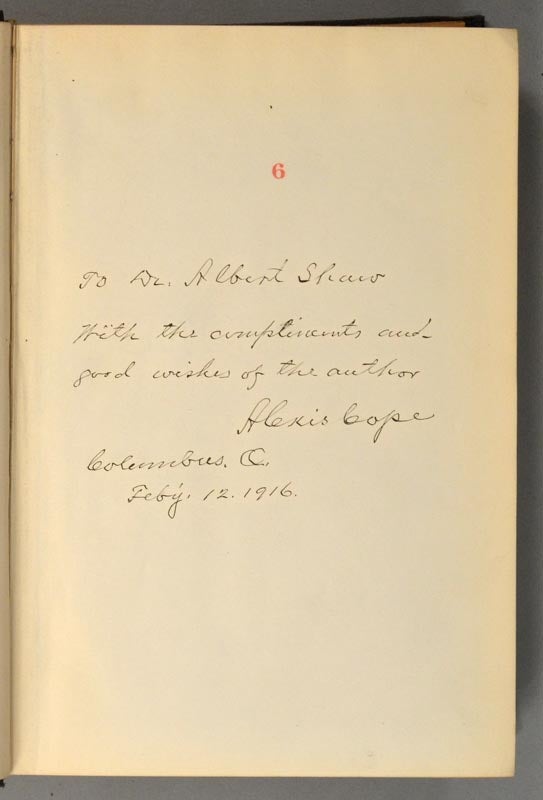 6
To Dr. Albert Shaw
With the compliments and
good wishes of the author
Alexis Cope
Columbus. O.
Feb'y. 12. 1916.